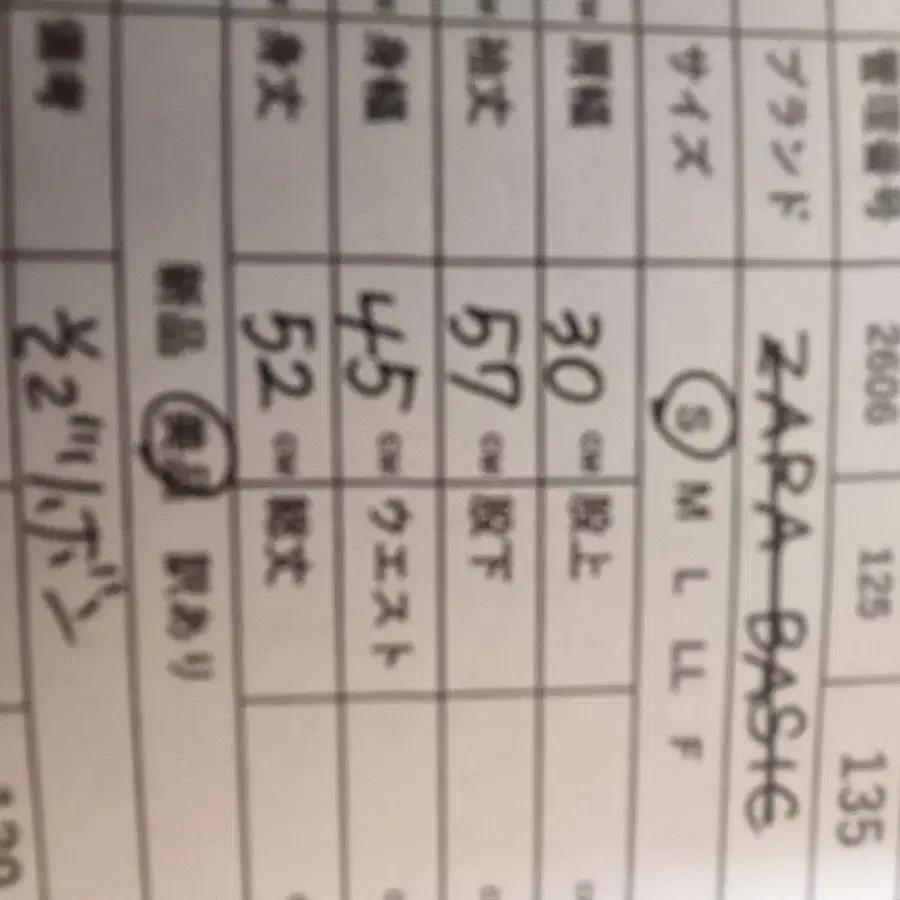 管理番号 2606 125 135
ブランド ZARA BASIC
サイズ S M L LL F
肩幅 30 cm 股上
袖丈 57 cm 股下
身幅 45 cm ウエスト
身丈 52 cm 総丈
新品 美品 訳あり
備考 そでリボン